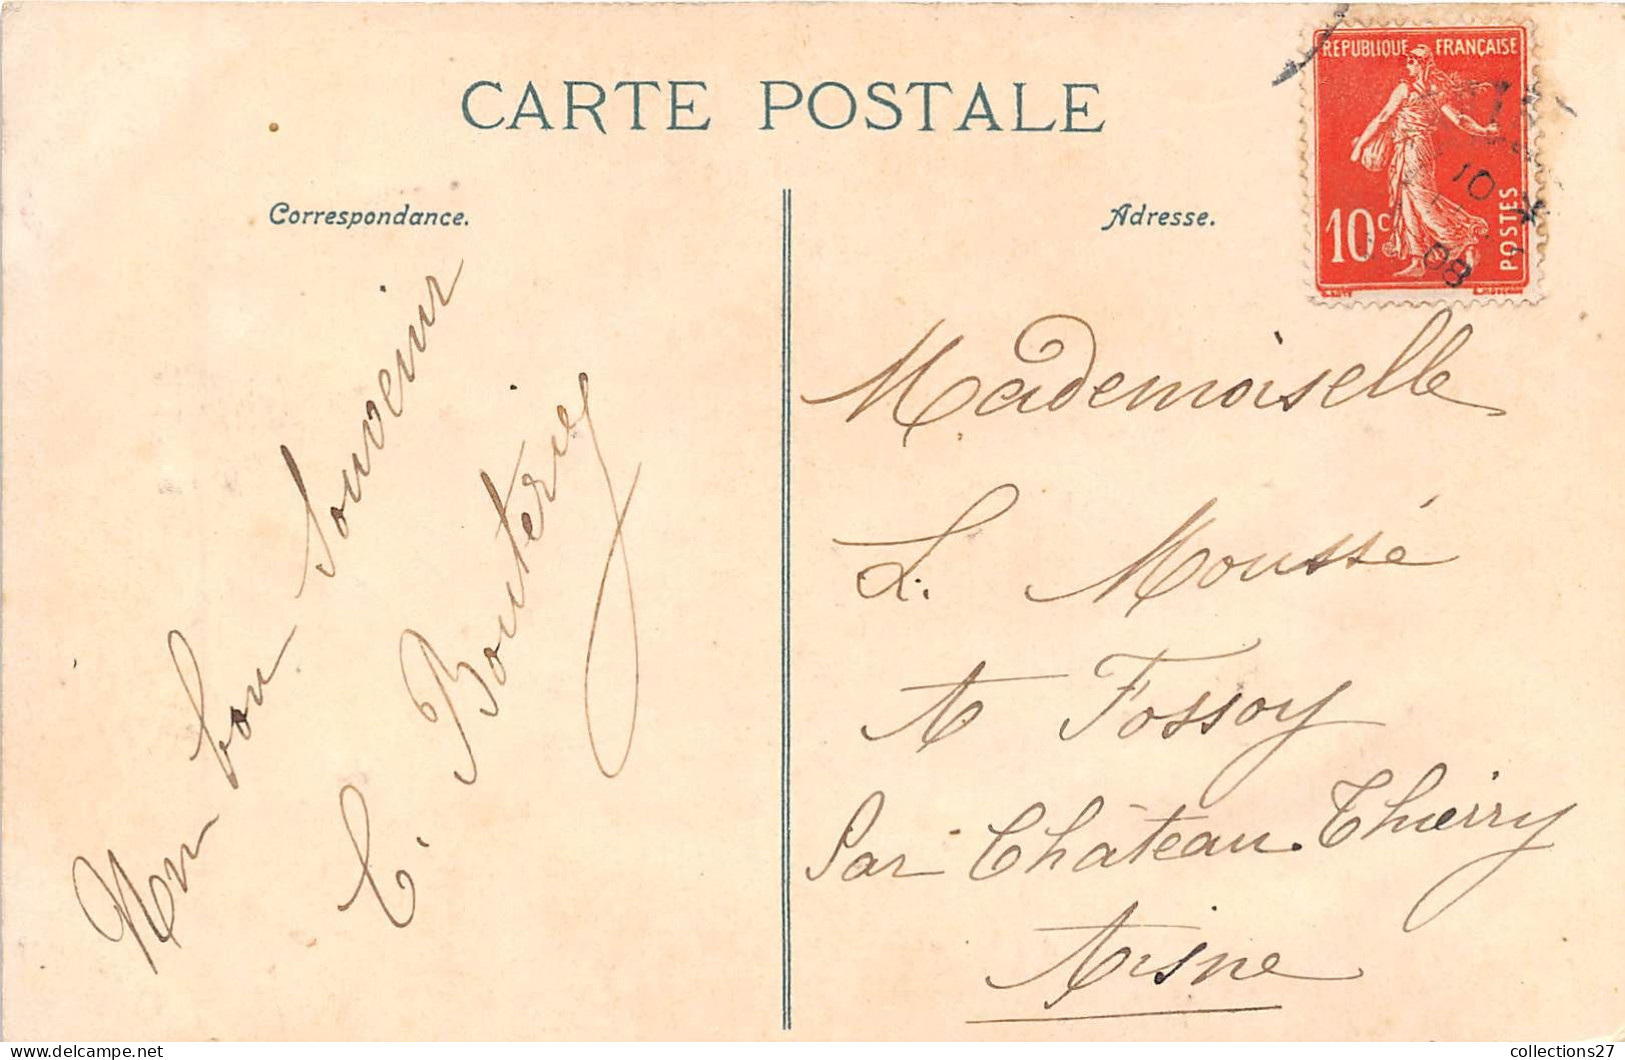 CARTE POSTALE
Correspondance.
Un bon Souvenir
E. Boutéry
Adresse.
REPUBLIQUE FRANÇAISE
10c
POSTES
10
08
Mademoiselle
L. Moussé
A Fossoy
Par Château. Thierry
Aisne
collections27